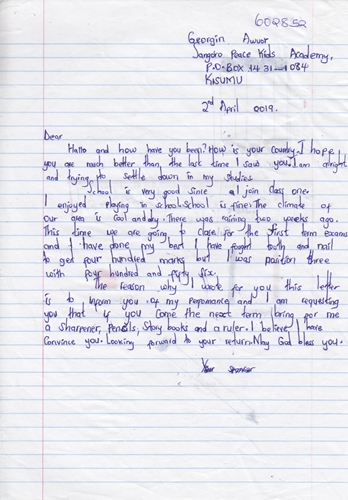 602852
Georgin Awuor
Jangoro Peace Kids Academy,
P.O-BOX 1431-1084
KISUMU
2nd April 2019.
Dear
Hallo and how have you been? How is your country. I hope
you are much better than, the last time I saw you. I am alright
and trying to settle down in my studies.
School is very good since I join class one.
I enjoyed playing in school. School is fine. The climate of
our area is cool and dry. There was raining two weeks ago.
This time we are going to close for the first term exams
and I have done my best I have fought tooth and nail
to get four hundred marks but I was position three
with four hundred and fifty six.
The reason why I wrote for you this letter
is to inform you of my perfomance and I am requesting
you that if you come the next term bring for me
a sharpener, pencils, story books and a ruler. I believe I have
convince you. Looking forward to your return. May God bless you.
Your sponsor